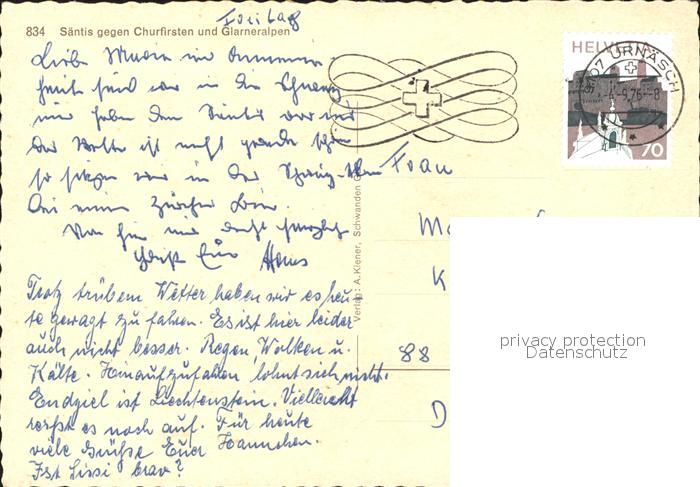 Freitag
834 Säntis gegen Churfirsten und Glarneralpen
Liebe
heute sind wir in der Schweiz
wir haben den Säntis vor uns
das Wetter ist nicht gerade schön
so sitzen wir in der
bei einem
Von hier
grüßt Euch Hans
Trotz trübem Wetter haben wir es heu-
te gewagt zu fahren. Es ist hier leider
auch nicht besser. Regen, Wolken u.
Kälte. Hinaufzufahren lohnt sich nicht.
Endziel ist Liechtenstein. Vielleicht
reißt es noch auf. Für heute
viele Grüße Euer Hannchen.
Ist Sissi brav?
Verlag: A. Kiener, Schwanden
HELVETIA
URNÄSCH
70
Frau
M
K
88
D
privacy protection
Datenschutz